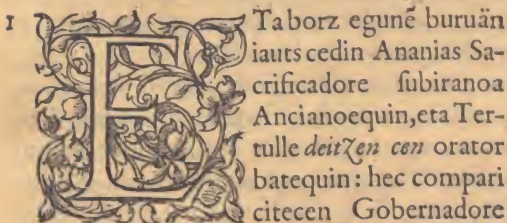 1 E Ta borz egunẽ buruän
iauts cedin Ananias Sa-
crificadore ſubiranoa
Ancianoequin, eta Ter-
tulle deitzen cen orator
batequin: hec compari
citecen Gobernadore